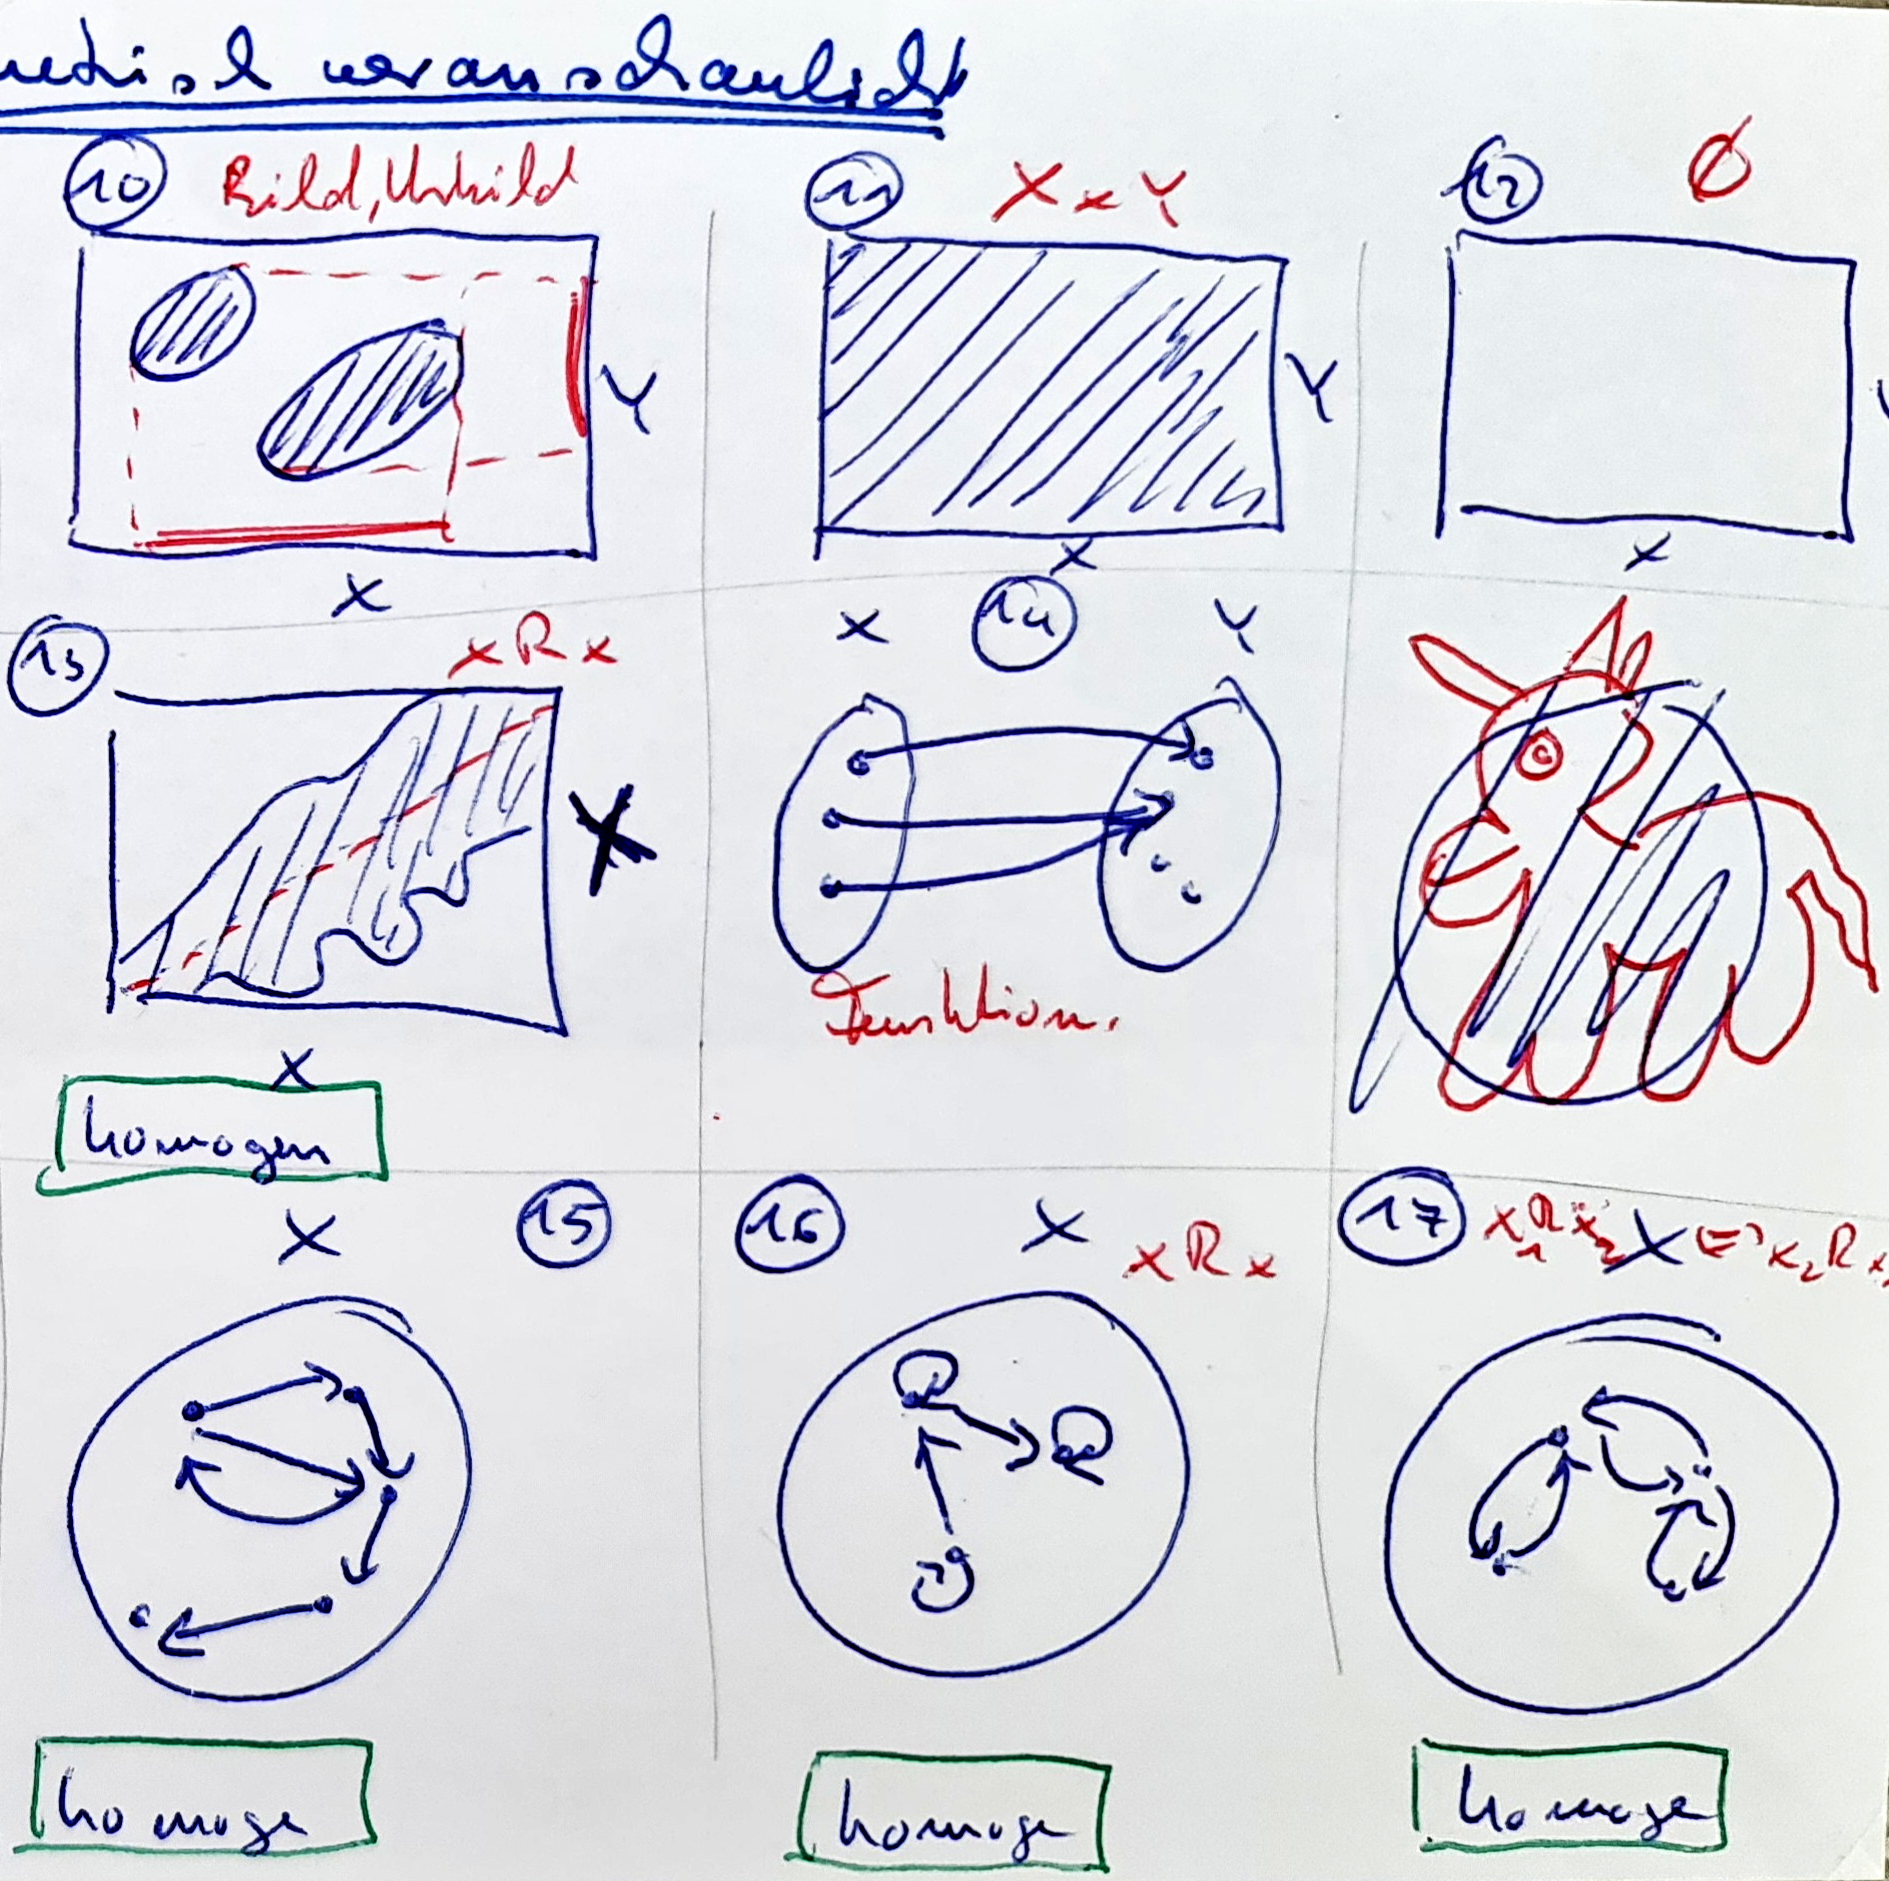 veranschaulicht
10 Bild, Urbild
Y
X
11 X x Y
Y
X
12 Ø
X
13 x R x
X
X
homogen
X 14 Y
Funktion.
X 15
homoge
16 X x R x
homoge
17 x₁ R x₂ X <=> x₂ R x
homoge